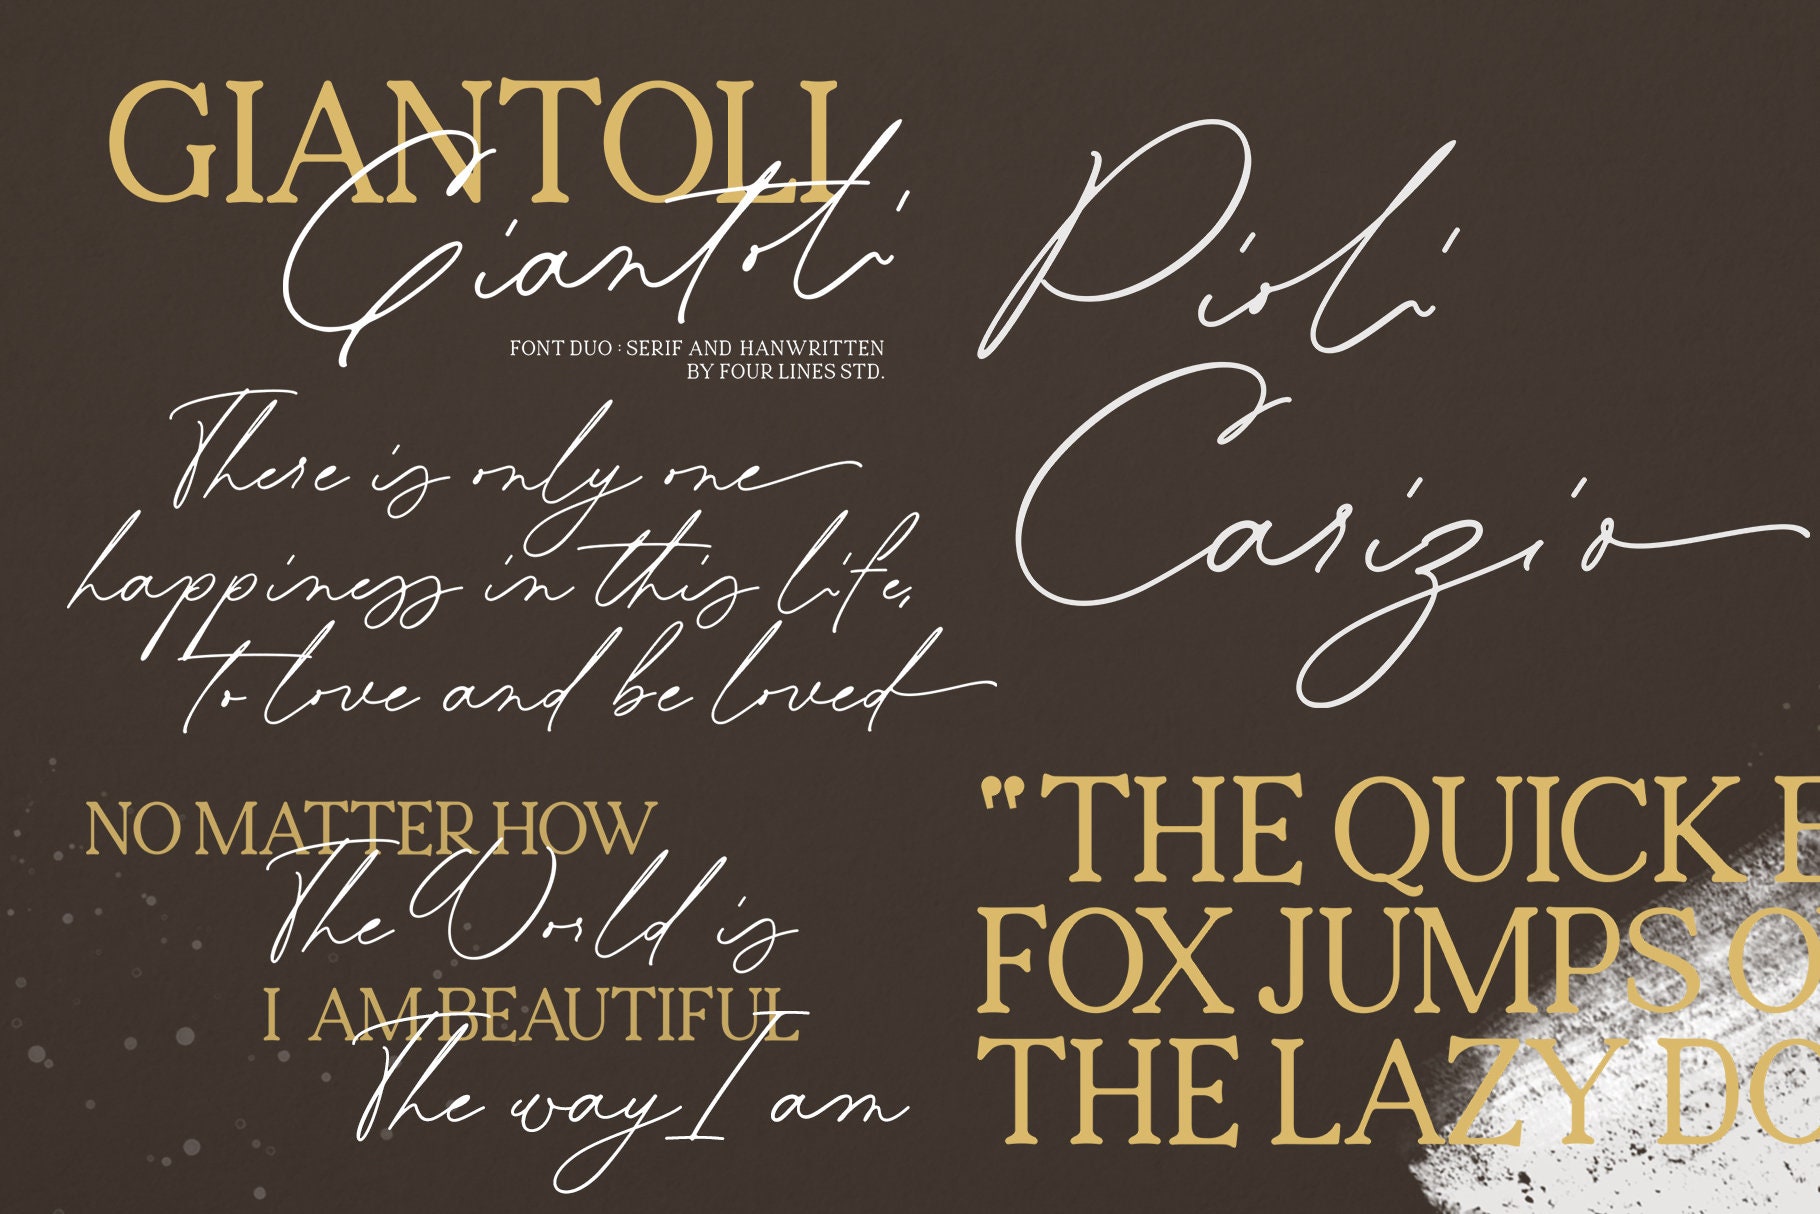 GIANTOLI
Giantoli
FONT DUO : SERIF AND HANWRITTEN
BY FOUR LINES STD.
There is only one
happiness in this life,
to love and be loved
NO MATTER HOW
The World is
I AM BEAUTIFUL
The way I am
Pioli
Carizio
"THE QUICK
FOX JUMPS O
THE LAZY DO